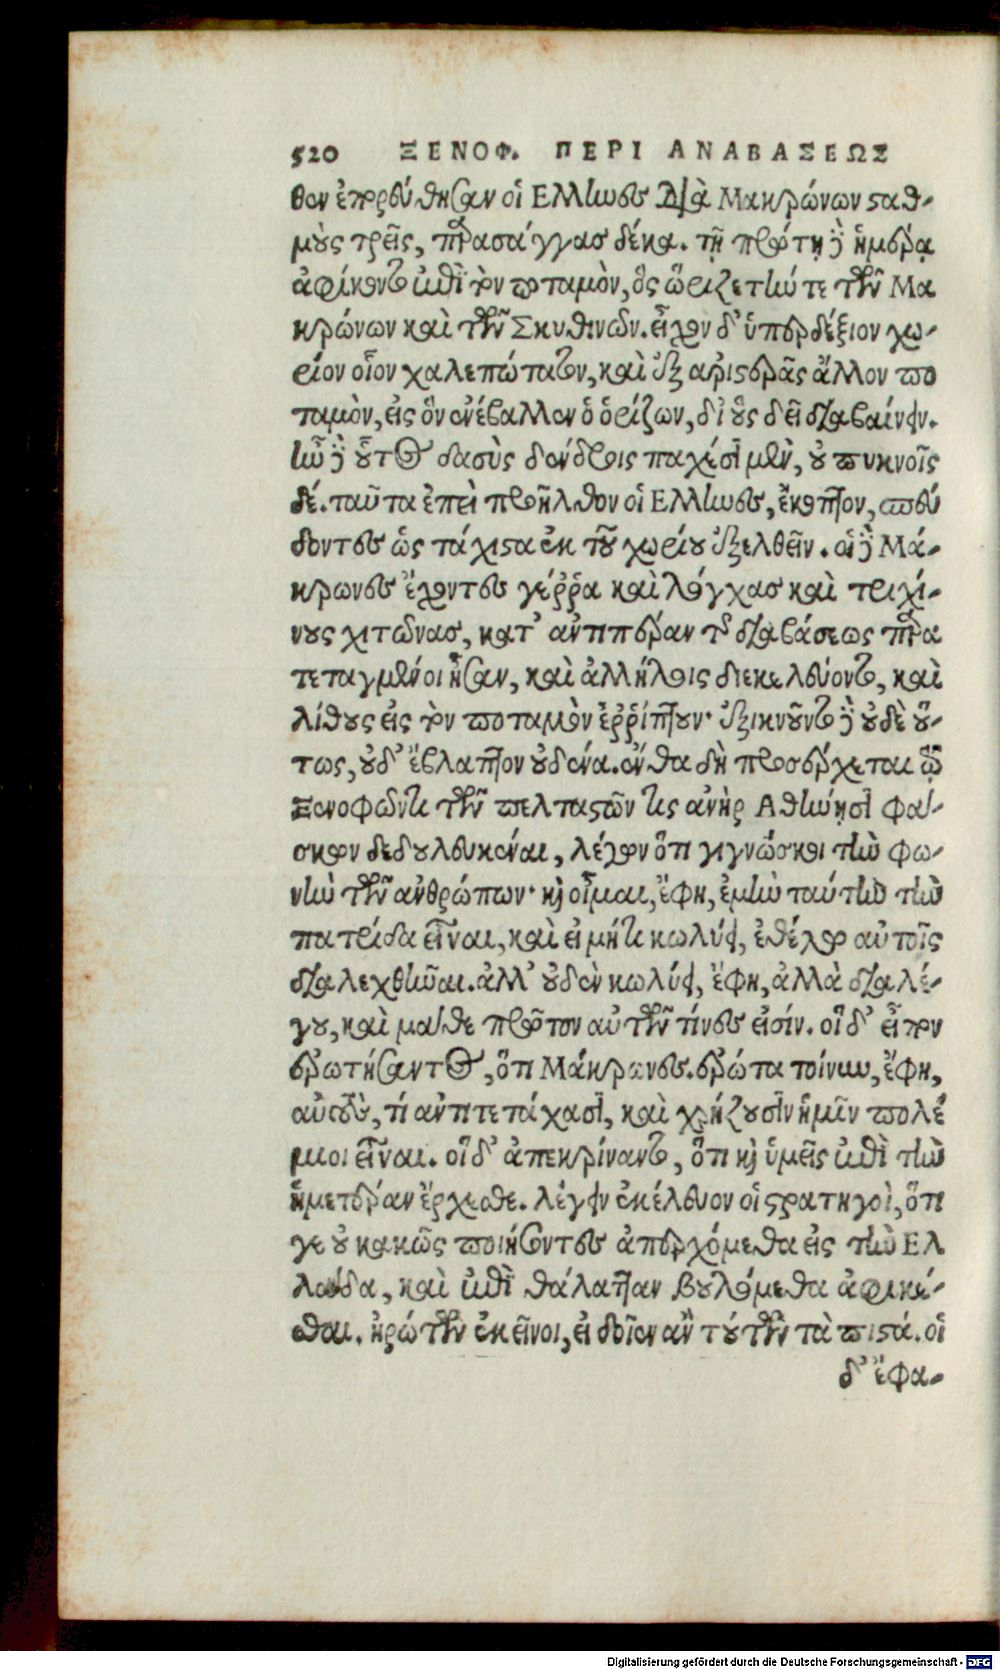 520 ΞΕΝΟΦ. ΠΕΡΙ ΑΝΑΒΑΣΕΩΣ
θεν ἐπορεύθησαν οἱ Ελληνες Διὰ Μακρώνων σταθ-
μοὺς τρεῖς, παρασάγγας δέκα. τῇ πρώτῃ δὲ ἡμέρᾳ
ἀφίκοντο ἐπὶ τὸν ποταμὸν, ὃς ὥριζε τήν τε τῶν Μα
κρώνων καὶ τῶν Σκυθινῶν. εἶχον δ' ὑπερδέξιον χω-
ρίον οἷον χαλεπώτατον, καὶ ἐξ ἀριστερᾶς ἄλλον πο
ταμὸν, εἰς ὃν ἐνέβαλλεν ὁ ὁρίζων, δι' οὗς δεῖ διαβαίνειν.
ἦν δὲ οὗτος δασὺς δένδροις παχέσι μὲν, οὐ πυκνοῖς
δέ. ταῦτα ἐπεὶ προῆλθον οἱ Ελληνες, ἔκοπτον, σπεύ
δοντες ὡς τάχιστα ἐκ τοῦ χωρίου ἐξελθεῖν. οἱ δὲ Μά-
κρωνες ἔχοντες γέῤῥα καὶ λόγχας καὶ τριχί-
νους χιτῶνας, κατ' ἀντιπέραν τῆς διαβάσεως παρα
τεταγμένοι ἦσαν, καὶ ἀλλήλοις διεκελεύοντο, καὶ
λίθους εἰς τὸν ποταμὸν ἐῤῥίπτουν· ἐξικνοῦντο δὲ οὐδὲ οὕ-
τως, οὐδ' ἔβλαπτον οὐδένα. ἔνθα δὴ προσέρχεται τῷ
Ξενοφῶντι τῶν πελταστῶν τις ἀνὴρ Αθήνησι φά-
σκων δεδουλευκέναι, λέγων ὅτι γιγνώσκει τὴν φω-
νὴν τῶν ἀνθρώπων· καὶ οἶμαι, ἔφη, ἐμὴν ταύτην τὴν
πατρίδα εἶναι, καὶ εἰ μή τι κωλύει, ἐθέλω αὐτοῖς
διαλεχθῆναι. ἀλλ' οὐδὲν κωλύει, ἔφη, ἀλλὰ διαλέ-
γου, καὶ μάθε πρῶτον αὐτῶν τίνες εἰσίν. οἱ δ' εἶπον
ἐρωτήσαντος, ὅτι Μάκρωνες. ἐρώτα τοίνυν, ἔφη,
αὐτοὺς, τί ἀντιτετάχασι, καὶ χρῄζουσιν ἡμῖν πολέ
μιοι εἶναι. οἱ δ' ἀπεκρίναντο, ὅτι καὶ ὑμεῖς ἐπὶ τὴν
ἡμετέραν ἔρχεσθε. λέγειν ἐκέλευον οἱ στρατηγοὶ, ὅτι
γε οὐ κακῶς ποιήσοντες ἀπερχόμεθα εἰς τὴν Ελ
λάδα, καὶ ἐπὶ θάλατταν βουλόμεθα ἀφικέ-
σθαι. ἠρώτων ἐκεῖνοι, εἰ δοῖεν ἂν τούτων τὰ πιστά. οἱ
δ' ἔφα-
Digitalisierung gefördert durch die Deutsche Forschungsgemeinschaft - DFG